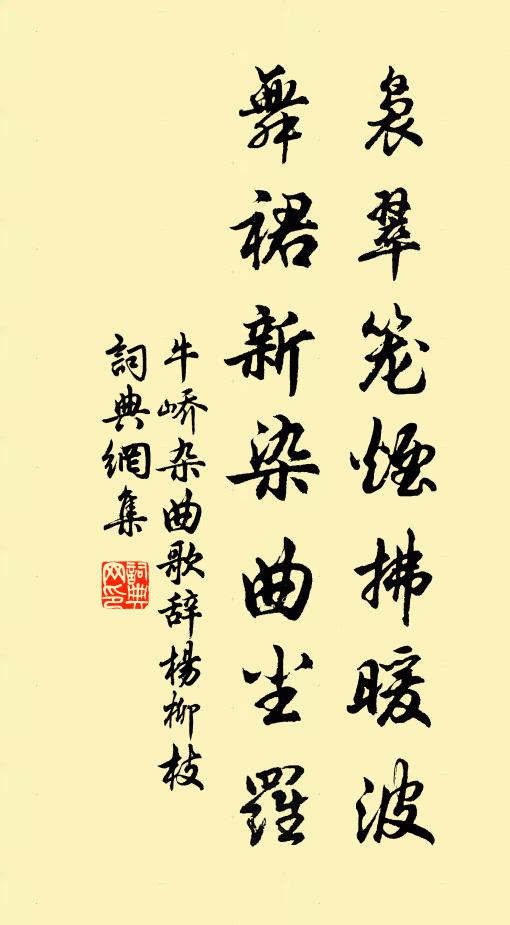 袅翠笼煙拂暖波
舞裙新染曲尘羅
牛峤杂曲歌辞楊柳枝
詞典網集
詞典网印